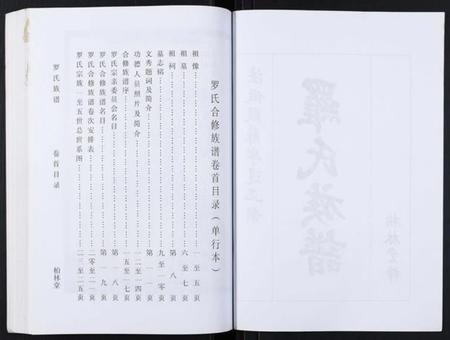 罗氏合修族谱卷首目录（单行本）
祖像……一至五页
祖墓……六至七页
祖祠……第八页
墓志铭……九至一〇页
文秀题词及简介……第一一页
功德人员照片及简介……一二至一四页
合修族谱序……一五至一七页
罗氏宗亲委员会名目……第一八页
罗氏合修族谱名目……第一九页
罗氏合修族谱卷次安排表……二零至二一页
罗氏宗族一至五世总世系图……二二至二五页
罗氏族谱
卷首目录
柏林堂
羅氏族譜